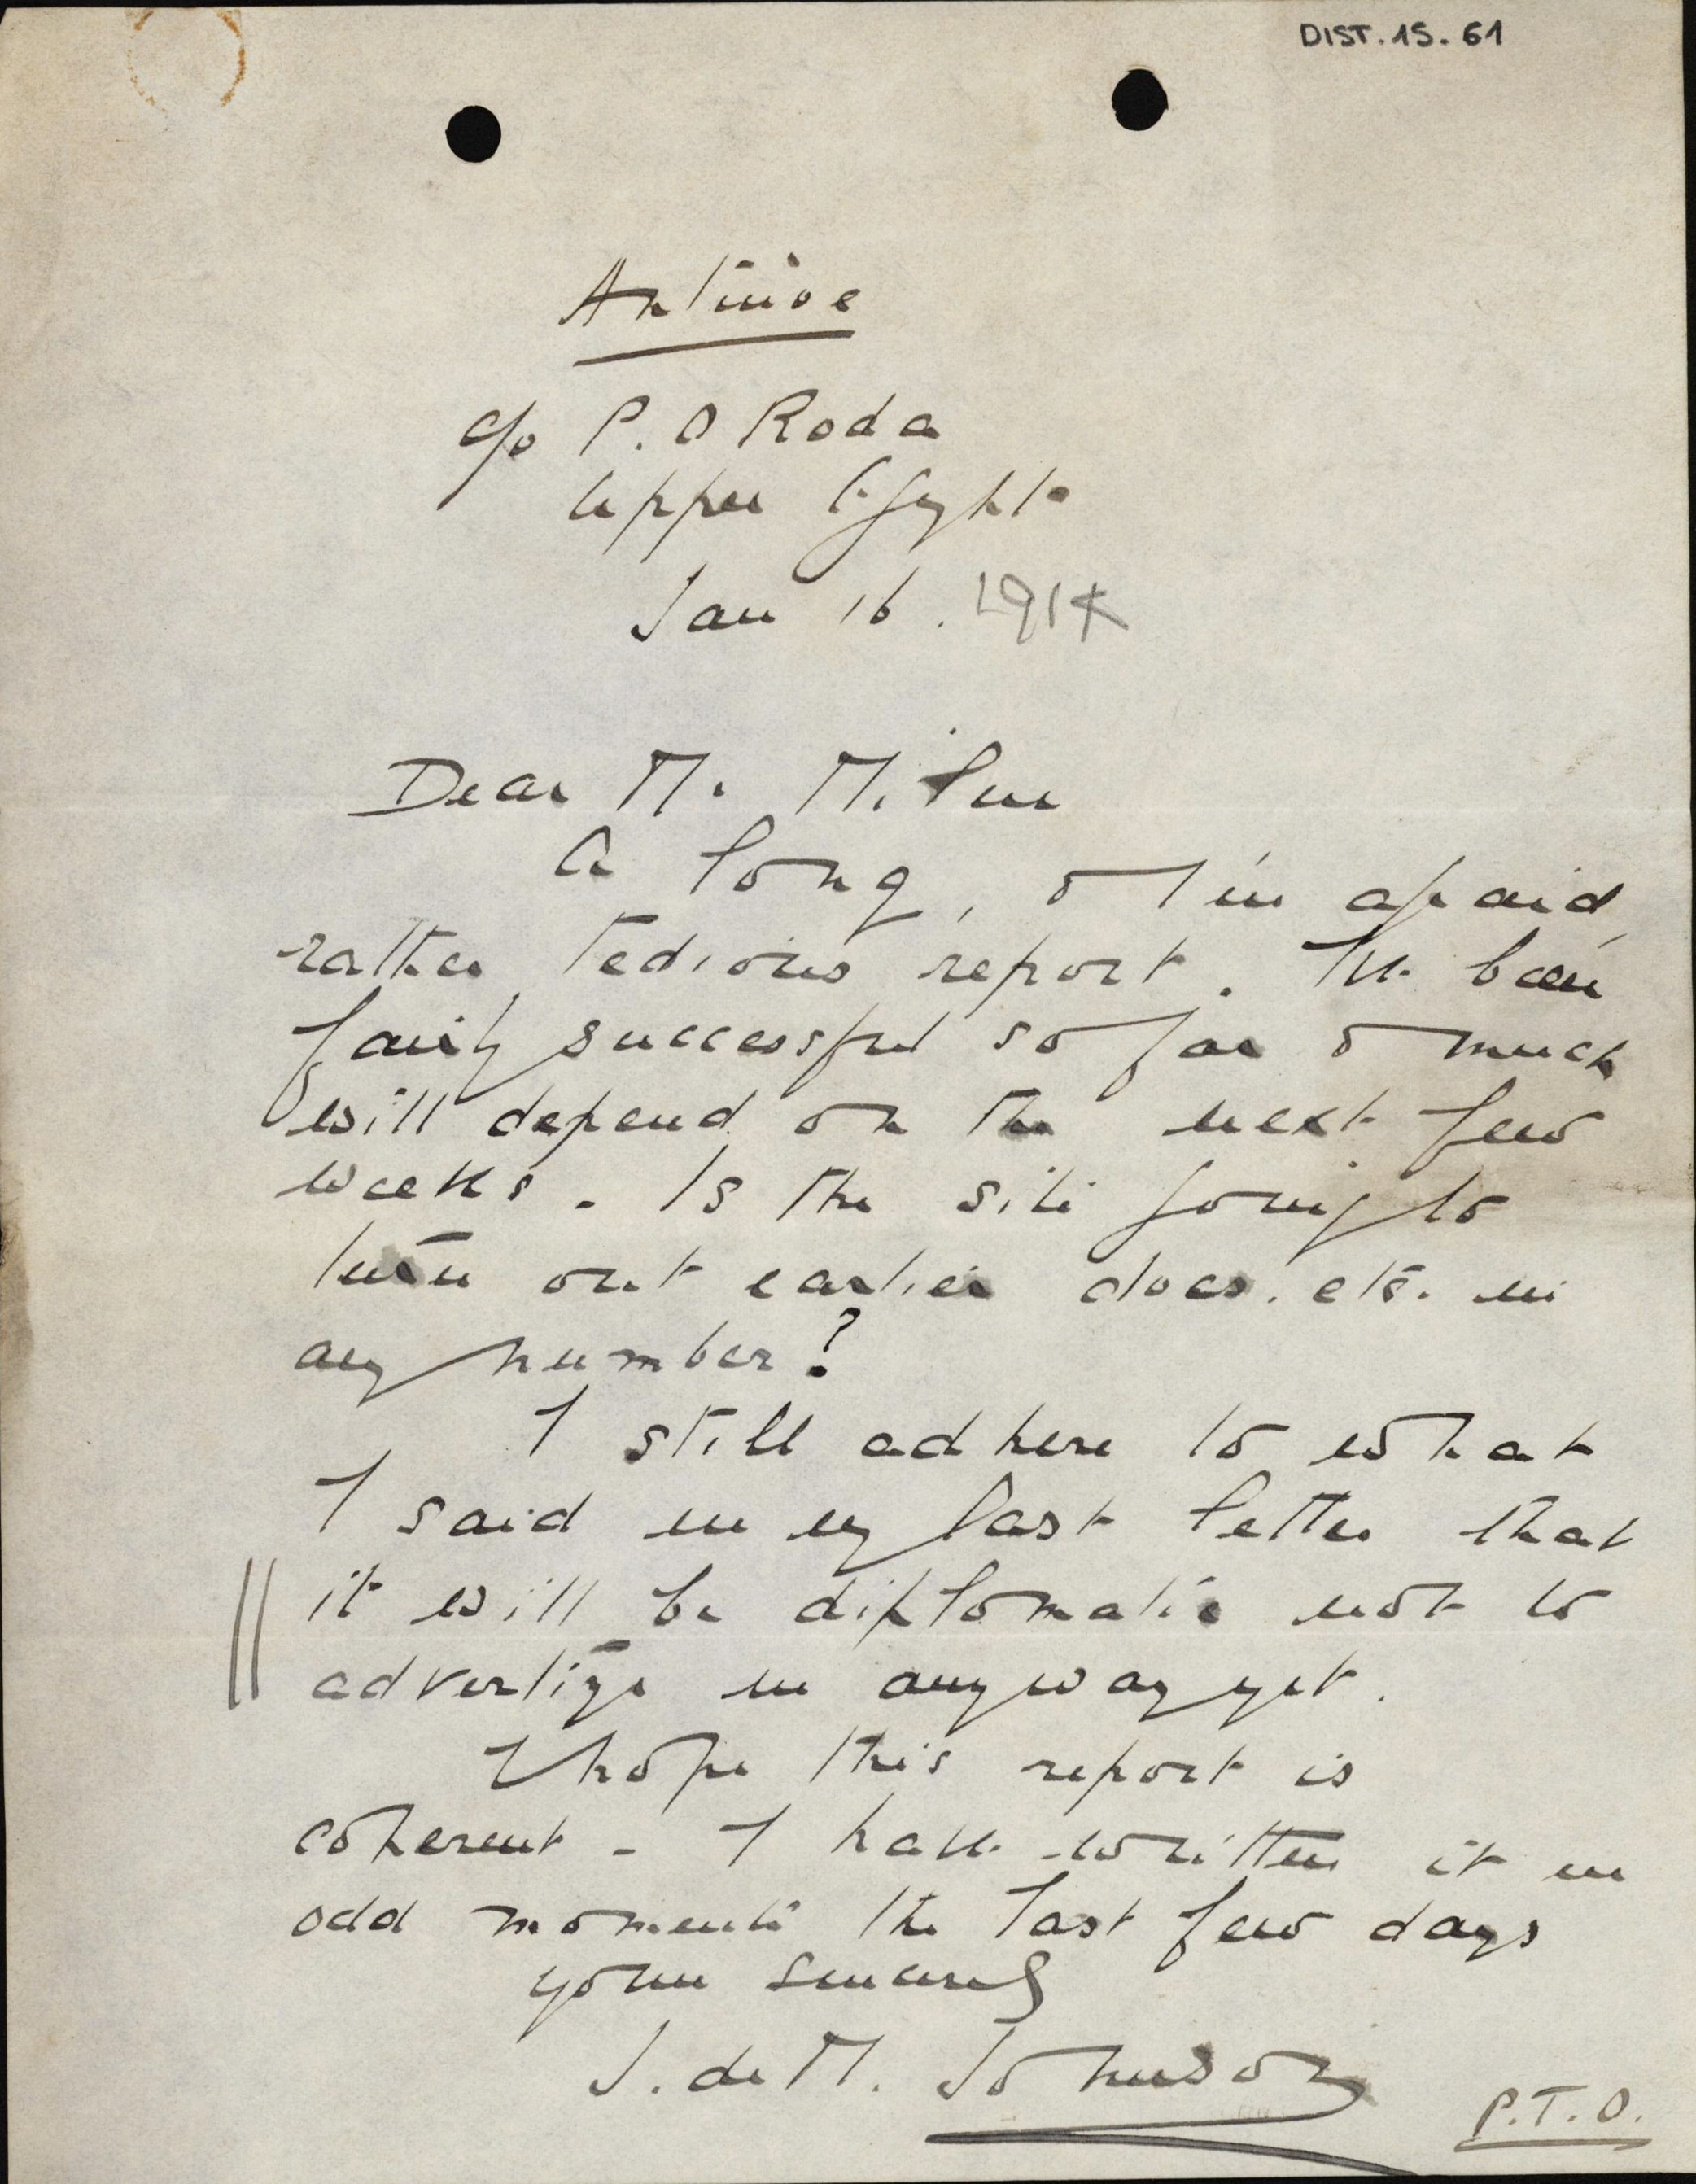 DIST. 15. 61
Antinöe
c/o P. O Roda
Upper Egypt
Jan 16. 1914
Dear Mr. Milne
A long, & I'm afraid,
rather tedious report. I've been
fairly successful so far & much
will depend on the next few
weeks. Is the site going to
turn out earlier docs. etc. in
any number?
I still adhere to what
I said in my last letter that
it will be diplomatic not to
advertize in anyway yet.
I hope this report is
coherent - I have written it in
odd moments the last few days
yours sincerely
J. de M. Johnson
P.T.O.